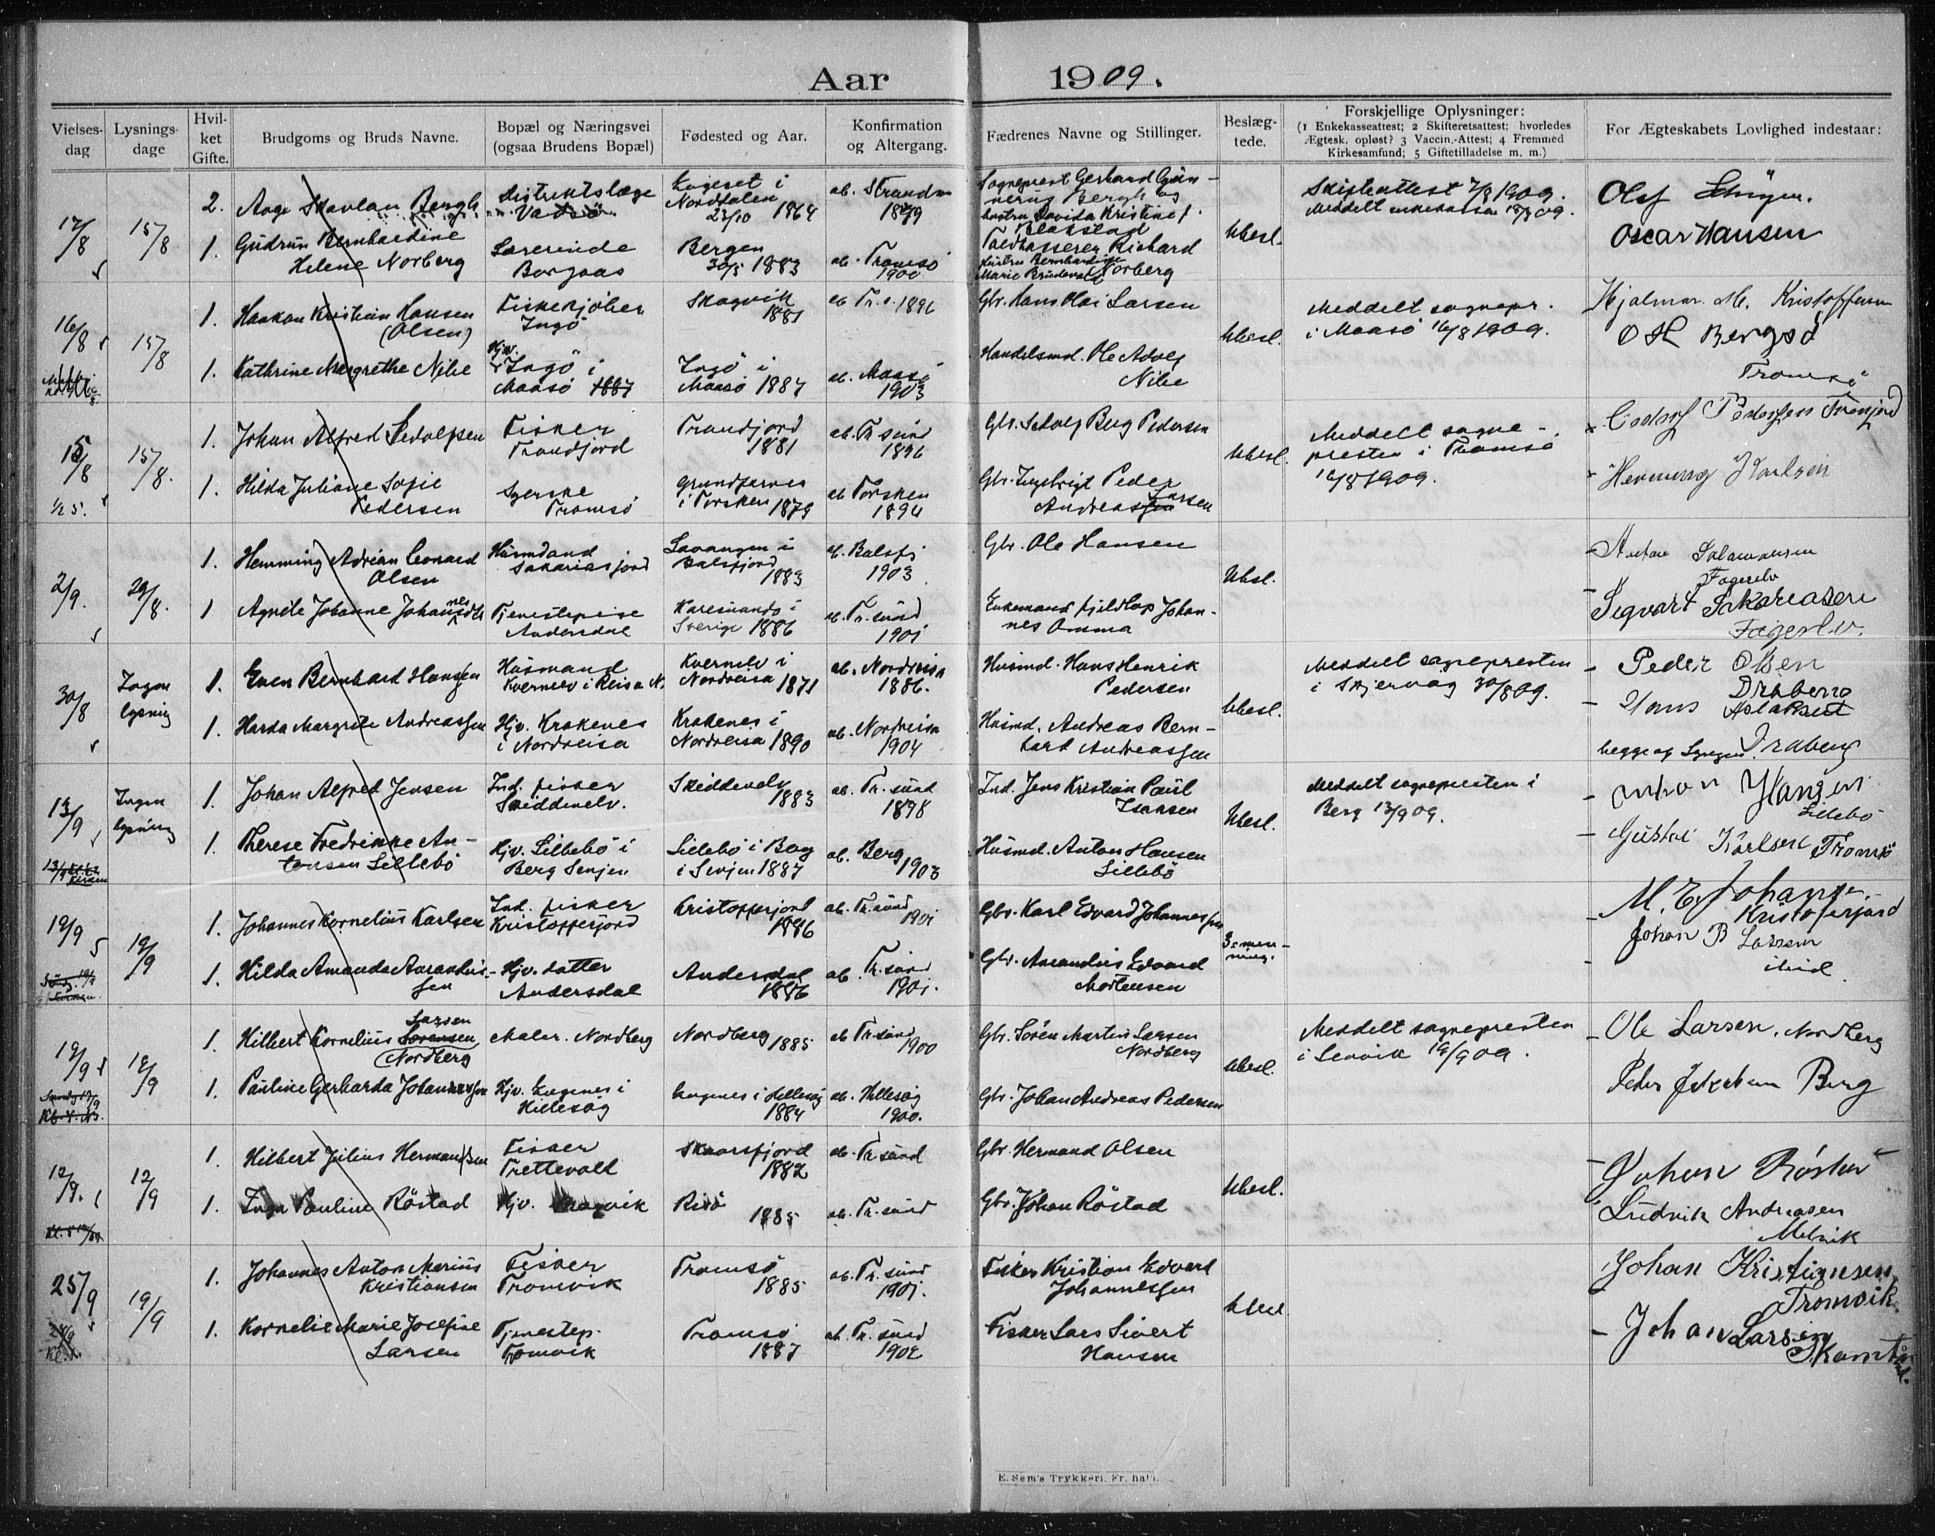 Aar 1909.
Vielses-dag
Lysnings-dage
Hvil-ket Gifte.
Brudgoms og Bruds Navne.
Bopæl og Næringsvei (ogsaa Brudens Bopæl)
Fødested og Aar.
Konfirmation og Altergang.
Fædrenes Navne og Stillinger.
Beslæg-tede.
Forskjellige Oplysninger:
(1 Enkekasseattest; 2 Skifteretsattest; hvorledes
Ægtesk. opløst? 3 Vaccin.-Attest; 4 Fremmed
Kirkesamfund; 5 Giftetilladelse m. m.)
For Ægteskabets Lovlighed indestaar:
17/8
15/8
2.
Aage Skavlan Bergh
Distriktslæge
Vardsö
Nordfalen
23/10 1864
ab. Strandn
1879
Sogneprest Gerhard Gun-
nerus Bergh og
hustru Davida Kristine f.
Ubesl.
Skifteattest 7/8 1909.
Meddelt enkekassen 18/8 09.
Olaf
1.
Gudrun Bernhardine
Helene Norberg
Lærerinde
Borgaas
Bergen
30/5 1883
ab. Tromsö
1900
Toldkasserer Richard
Hustru Bernhardine
Marie Norberg
Oscar Hansen
16/8
15/8
1.
Haakon Kristian Hansen
(Olsen)
Fiskekjöber
Ingö
Skogvik
1881
ab Tr. s. 1896
Gbr. Hans Olai Larsen
Ubesl.
Meddelt sognepr.
i Maasö 16/8 1909.
Hjalmar M. Kristoffersen
O H Bergsö
Tromsö
1.
Kathrine Margrethe Nilse
Hjv.
Ingö i
Maasö 1887
Ingö i
Maasö 1887
ab. Maasö
1903
Handelsmd. Ole Adolf
Nilse
15/8
1/2 5.
15/8.
1.
Johan Alfred Sedolfsen
Fisker
Tromfjord
1881
ab. Tr. sund
1896
Gbr. Sedolf Berg Pedersen
Ubesl.
Meddelt sogne-
presten i Tromsö
16/8 1909.
1.
Hilda Juliane Sofie
Pedersen
Syerske
Tromsö
Grundfarnes
i Torsken 1879
ab Torsken
1894
Gbr. Ingebrigt Peder
Larsen
Andreassen
Henning Karlsen
2/9.
29/8.
1.
Hemming Adrian Leonard
Olsen
Husmand
Sakariasfjord
Lavangen i
Balsfjord
1883
ab. Balsfj
1903
Gbr. Ole Hansen
Ubsl.
Anton Salamonsen
Fagerelv
1
Agnete Johanne Johannesdtr
Tjenestepige
Andersdal
Karesuando i
Sverige 1886
ab. Tr. sund
1901
Enkemand fjeldlap Johan-
nes Omma
Sigvart Sakariasen
Fagerelv.
30/8
Ingen
lysning
1.
Even Bernhard Hansen
Husmand
Kvernelv i Reisa N.
Kvernelv i
Nordreisa 1871
ab. Nordreisa
1886.
Husmd. Hans Henrik
Pedersen
Ubesl.
Meddelt sognepresten
i Skjervøg 30/8 09.
Peder Olsen
Draberg
Hans Aslaksen
begge af Lyngen. Draberg
1.
Harda Margrete Andreassen
Hjv. Krakenes
i Nordreisa
Krakenes i
Nordreisa 1890
ab. Nordreisa
1904
Husmd. Andreas Bern-
hard Andreassen
13/9
Ingen
lysning
1.
Johan Alfred Jensen
Ind. fisker
Skiddenelv.
Skiddenelv
1883
ab. Tr. sund
1898
Ind. Jens Kristian Paul
Isaksen
Ubesl.
Meddelt sognepresten i
Berg 13/9 09.
Anton Hansen
Lillebö
1.
Therese Fredrikke An-
tonsen Lillebö
Hjv. Lillebö i
Berg Senjen
Lillebö i Berg
i Senjen 1887
ab. Berg
1903
Husmd. Anton Hansen
Lillebö
Gustav Karlsen Tromsö
19/9
12/9
1.
Johannes Kornelius Karlsen
Ind. fisker
Kristofferfjord
Kristofferfjord
1886
ab. Tr. sund
1901
Gbr. Karl Edvard Johannessen
3-men-
ning.
M. E. Johans
Kristoferfjord
Johan B Larsen
ibid
1.
Hilda Amanda Amandus-
sen
Hjv. datter
Andersdal
Andersdal
1886
ab. Tr. sund
1901.
Gbr. Amandus Edvard
Mortensen
19/9
12/9
1.
Hilbert Kornelius Sørensen
Larsen
(Nordberg
Maler. Nordberg
Nordberg 1885
ab Tr. sund
1900
Gbr. Sören Martin Larsen
Nordberg
Ubesl.
Meddelt sognepresten
i Lenvik 19/9 09.
Ole Larsen, Nordberg
1.
Pauline Gerharda Johannessen
Hjv. Laugenes i
Hillesøg
Laugenes i Hillesøg
1884
ab. Hillesøg
1900.
Gbr. Johan Andreas Pedersen
Peder Jakobsen Berg
12/9.
12/9
1.
Hilbert Julius Hermansen
Fisker
Trettevold
Skaarsfjord
1882
ab. Tr. sund
Gbr. Hermand Olsen
Ubesl.
Johan Röstad
1.
Inga Pauline Röstad
Hjv.
Risö
1885
ab. Tr. sund
Gbr. Johan Röstad
Ludvik Andreasen
Melvik
25/9
19/9
1.
Johannes Anton Marius
Kristiansen
Fisker
Tromvik
Tromsö
1885
ab. Tr. sund
1901.
Fisker Kristian Edvard
Johannessen
Ubesl.
Johan Kristiansen
Tromvik.
1.
Kornelie Marie Josefine
Larsen
Tjenestep.
Tromvik
Tromsö
1887
ab. Tr. sund
1902
Fisker Lars Sivert
Hansen
Johan Larsen
E. Sem's Trykkeri, Fr.hald.